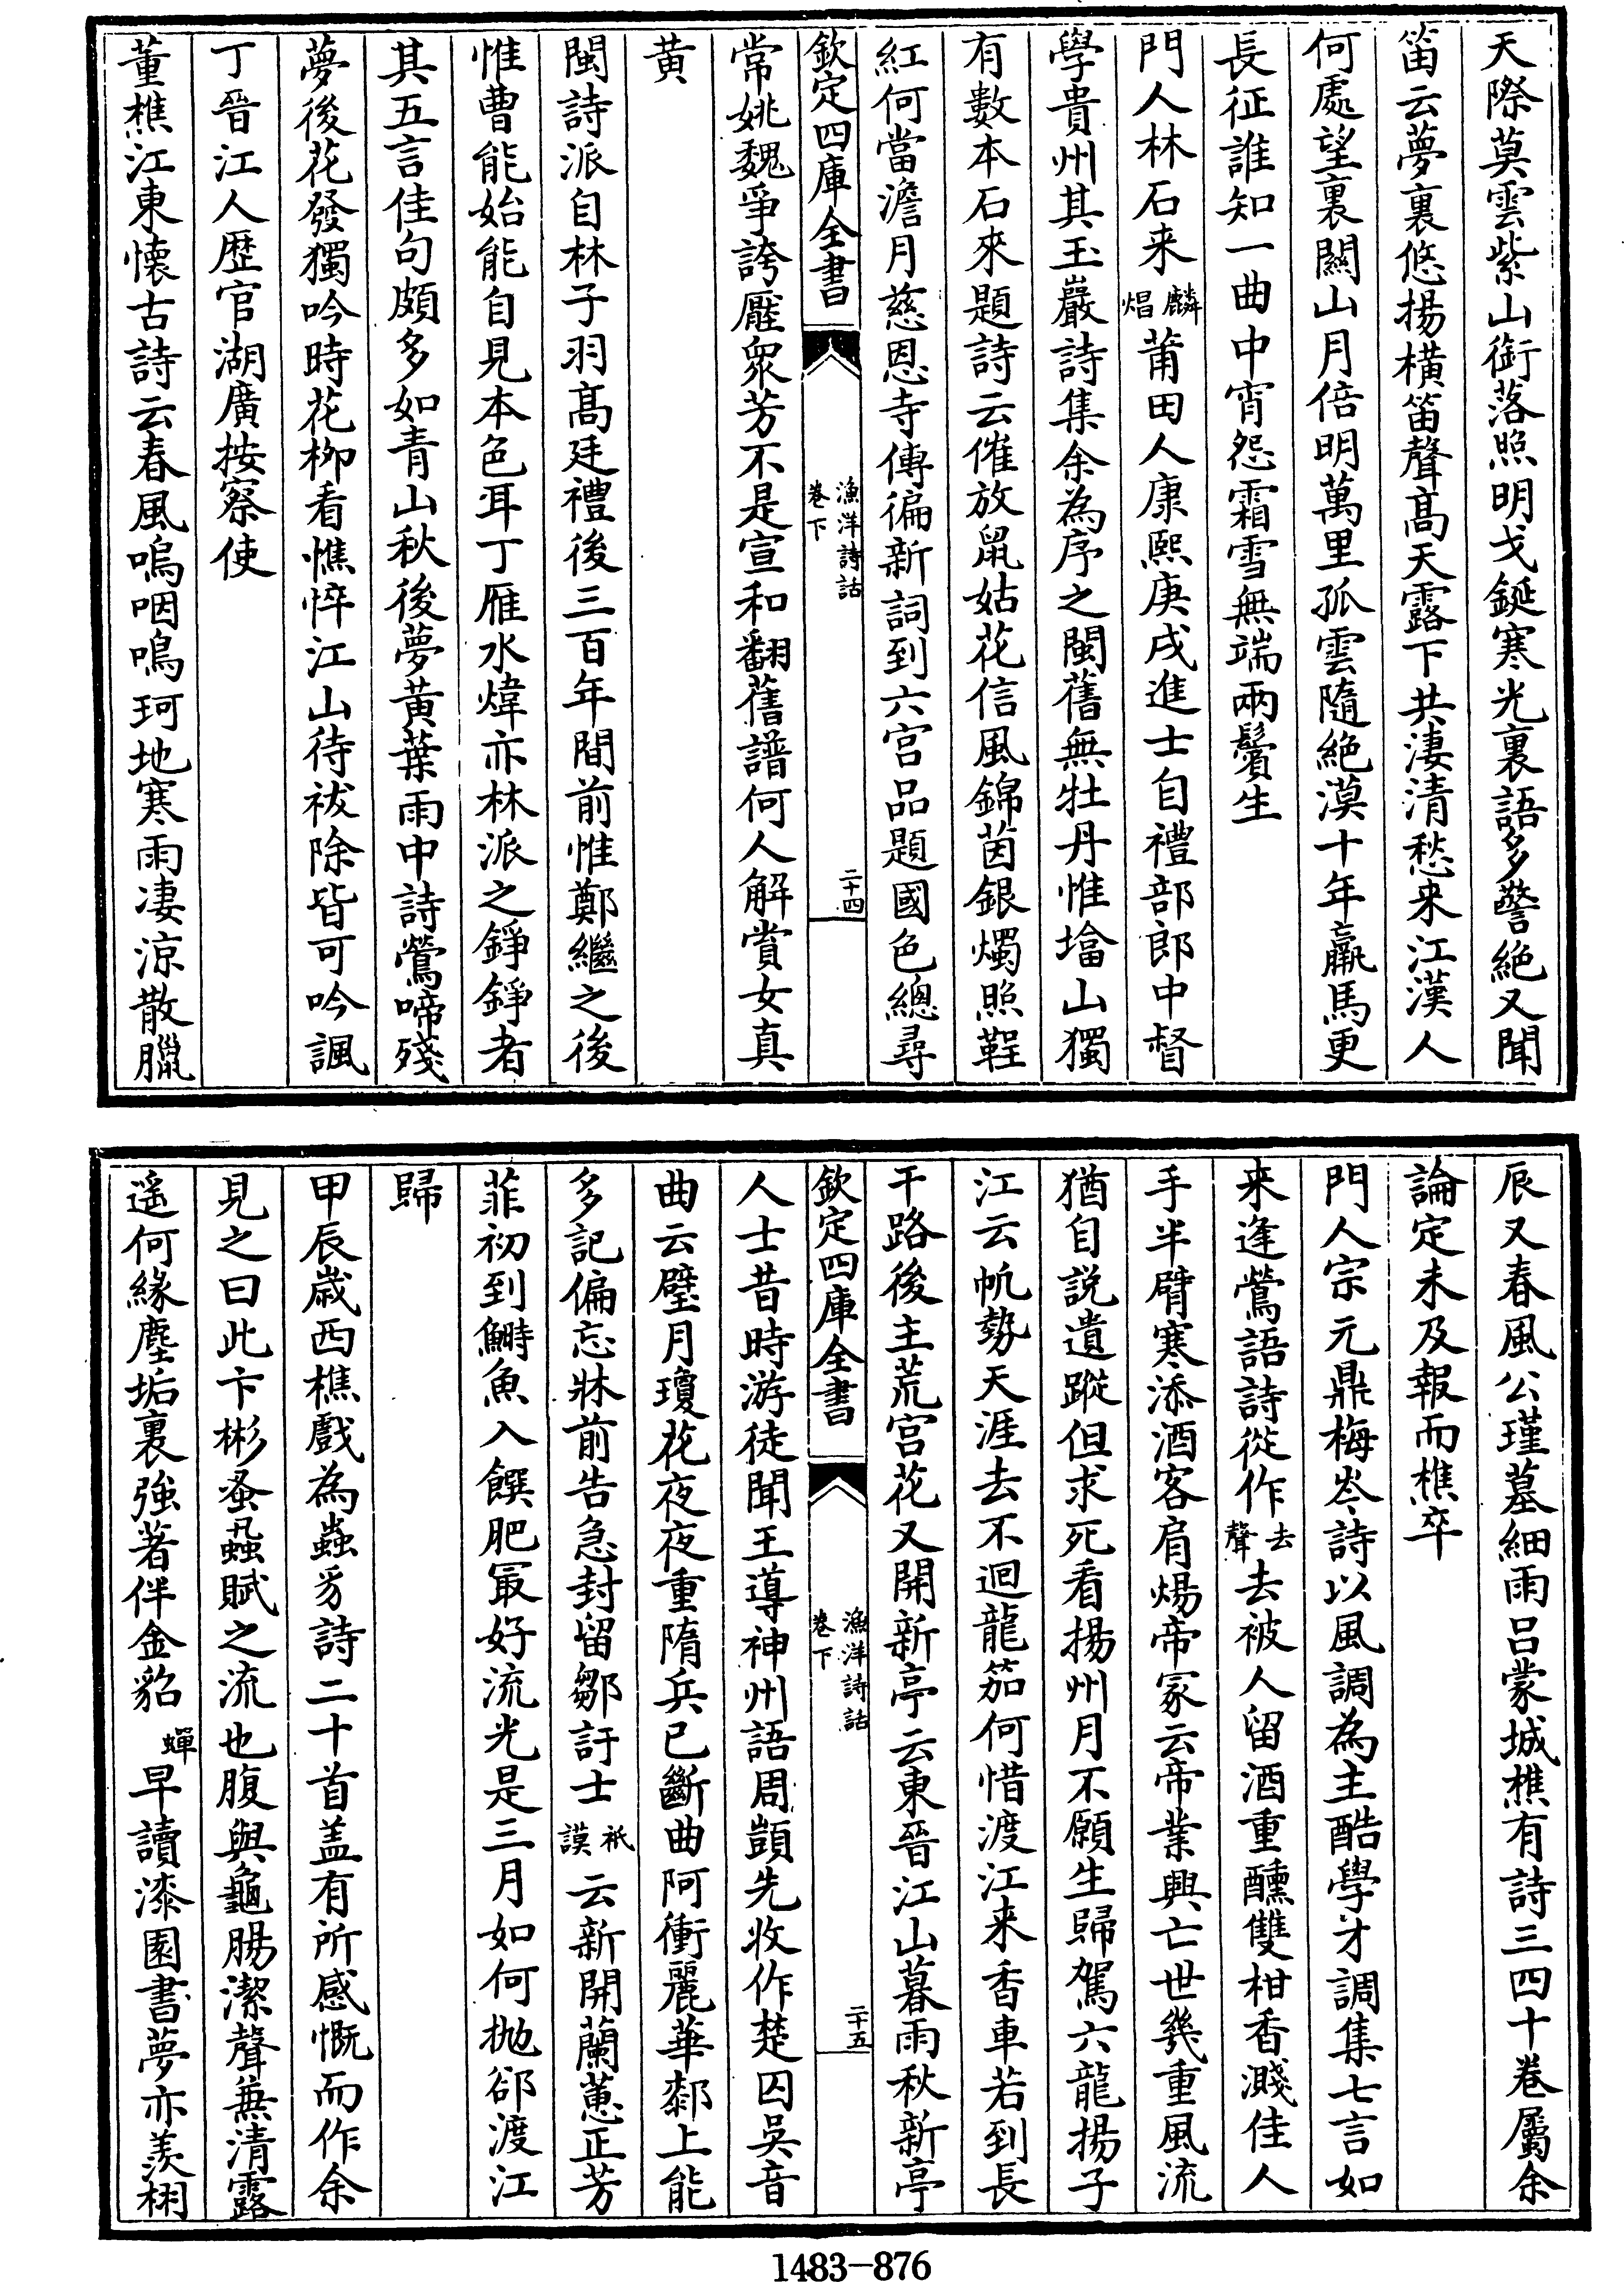 天際莫雲紫山銜落照明戈鋋寒光裏語多警絶又聞
笛云夢裏悠揚橫笛聲髙天露下共淒清愁来江漢人
何處望裏闗山月倍明萬里孤雲隨絶漠十年羸馬更
長征誰知一曲中宵怨霜雪無端兩鬢生
門人林石来麟焻莆田人康熙庚戌進士自禮部郎中督
學貴州其玉巖詩集余為序之閩舊無牡丹惟塔山獨
有數本石來題詩云催放鼠姑花信風錦茵銀燭照鞓
紅何當澹月慈恩寺傳徧新詞到六宫品題國色總尋
欽定四庫全書 漁洋詩話 卷下 二十四
常姚魏爭誇壓衆芳不是宣和翻舊譜何人解賞女真
黄
閩詩派自林子羽髙廷禮後三百年間前惟鄭繼之後
惟曹能始能自見本色耳丁雁水煒亦林派之錚錚者
其五言佳句頗多如青山秋後夢黄葉雨中詩鶯啼殘
夢後花發獨吟時花栁看憔悴江山待祓除皆可吟諷
丁晉江人歴官湖廣按察使
董樵江東懐古詩云春風嗚咽鳴珂地寒雨凄涼散臘
辰又春風公瑾墓細雨吕蒙城樵有詩三四十巻屬余
論定未及報而樵卒
門人宗元鼎梅岑詩以風調為主酷學才調集七言如
来逢鶯語詩從作去聲去被人留酒重醺雙柑香濺佳人
手半臂寒添酒客肩煬帝冡云帝業興亡世幾重風流
猶自説遺蹤但求死看揚州月不願生歸駕六龍揚子
江云帆勢天涯去不迴龍笳何惜渡江来香車若到長
干路後主荒宫花又開新亭云東晉江山暮雨秋新亭
欽定四庫全書 漁洋詩話 卷下 二十五
人士昔時游徒聞王導神州語周顗先收作楚囚吳音
曲云璧月瓊花夜夜重隋兵已斷曲阿衝麗華郄上能
多記偏忘牀前告急封留鄒訏士祇謨云新開蘭蕙正芳
菲初到鰣魚入饌肥冣好流光是三月如何抛郤渡江
歸
甲辰嵗西樵戲為蟲豸詩二十首盖有所感慨而作余
見之曰此卞彬蚤蝨賦之流也腹與龜腸潔聲兼清露
遥何緣塵垢裏強著伴金貂蟬早讀漆園書夢亦羨栩
1483-876